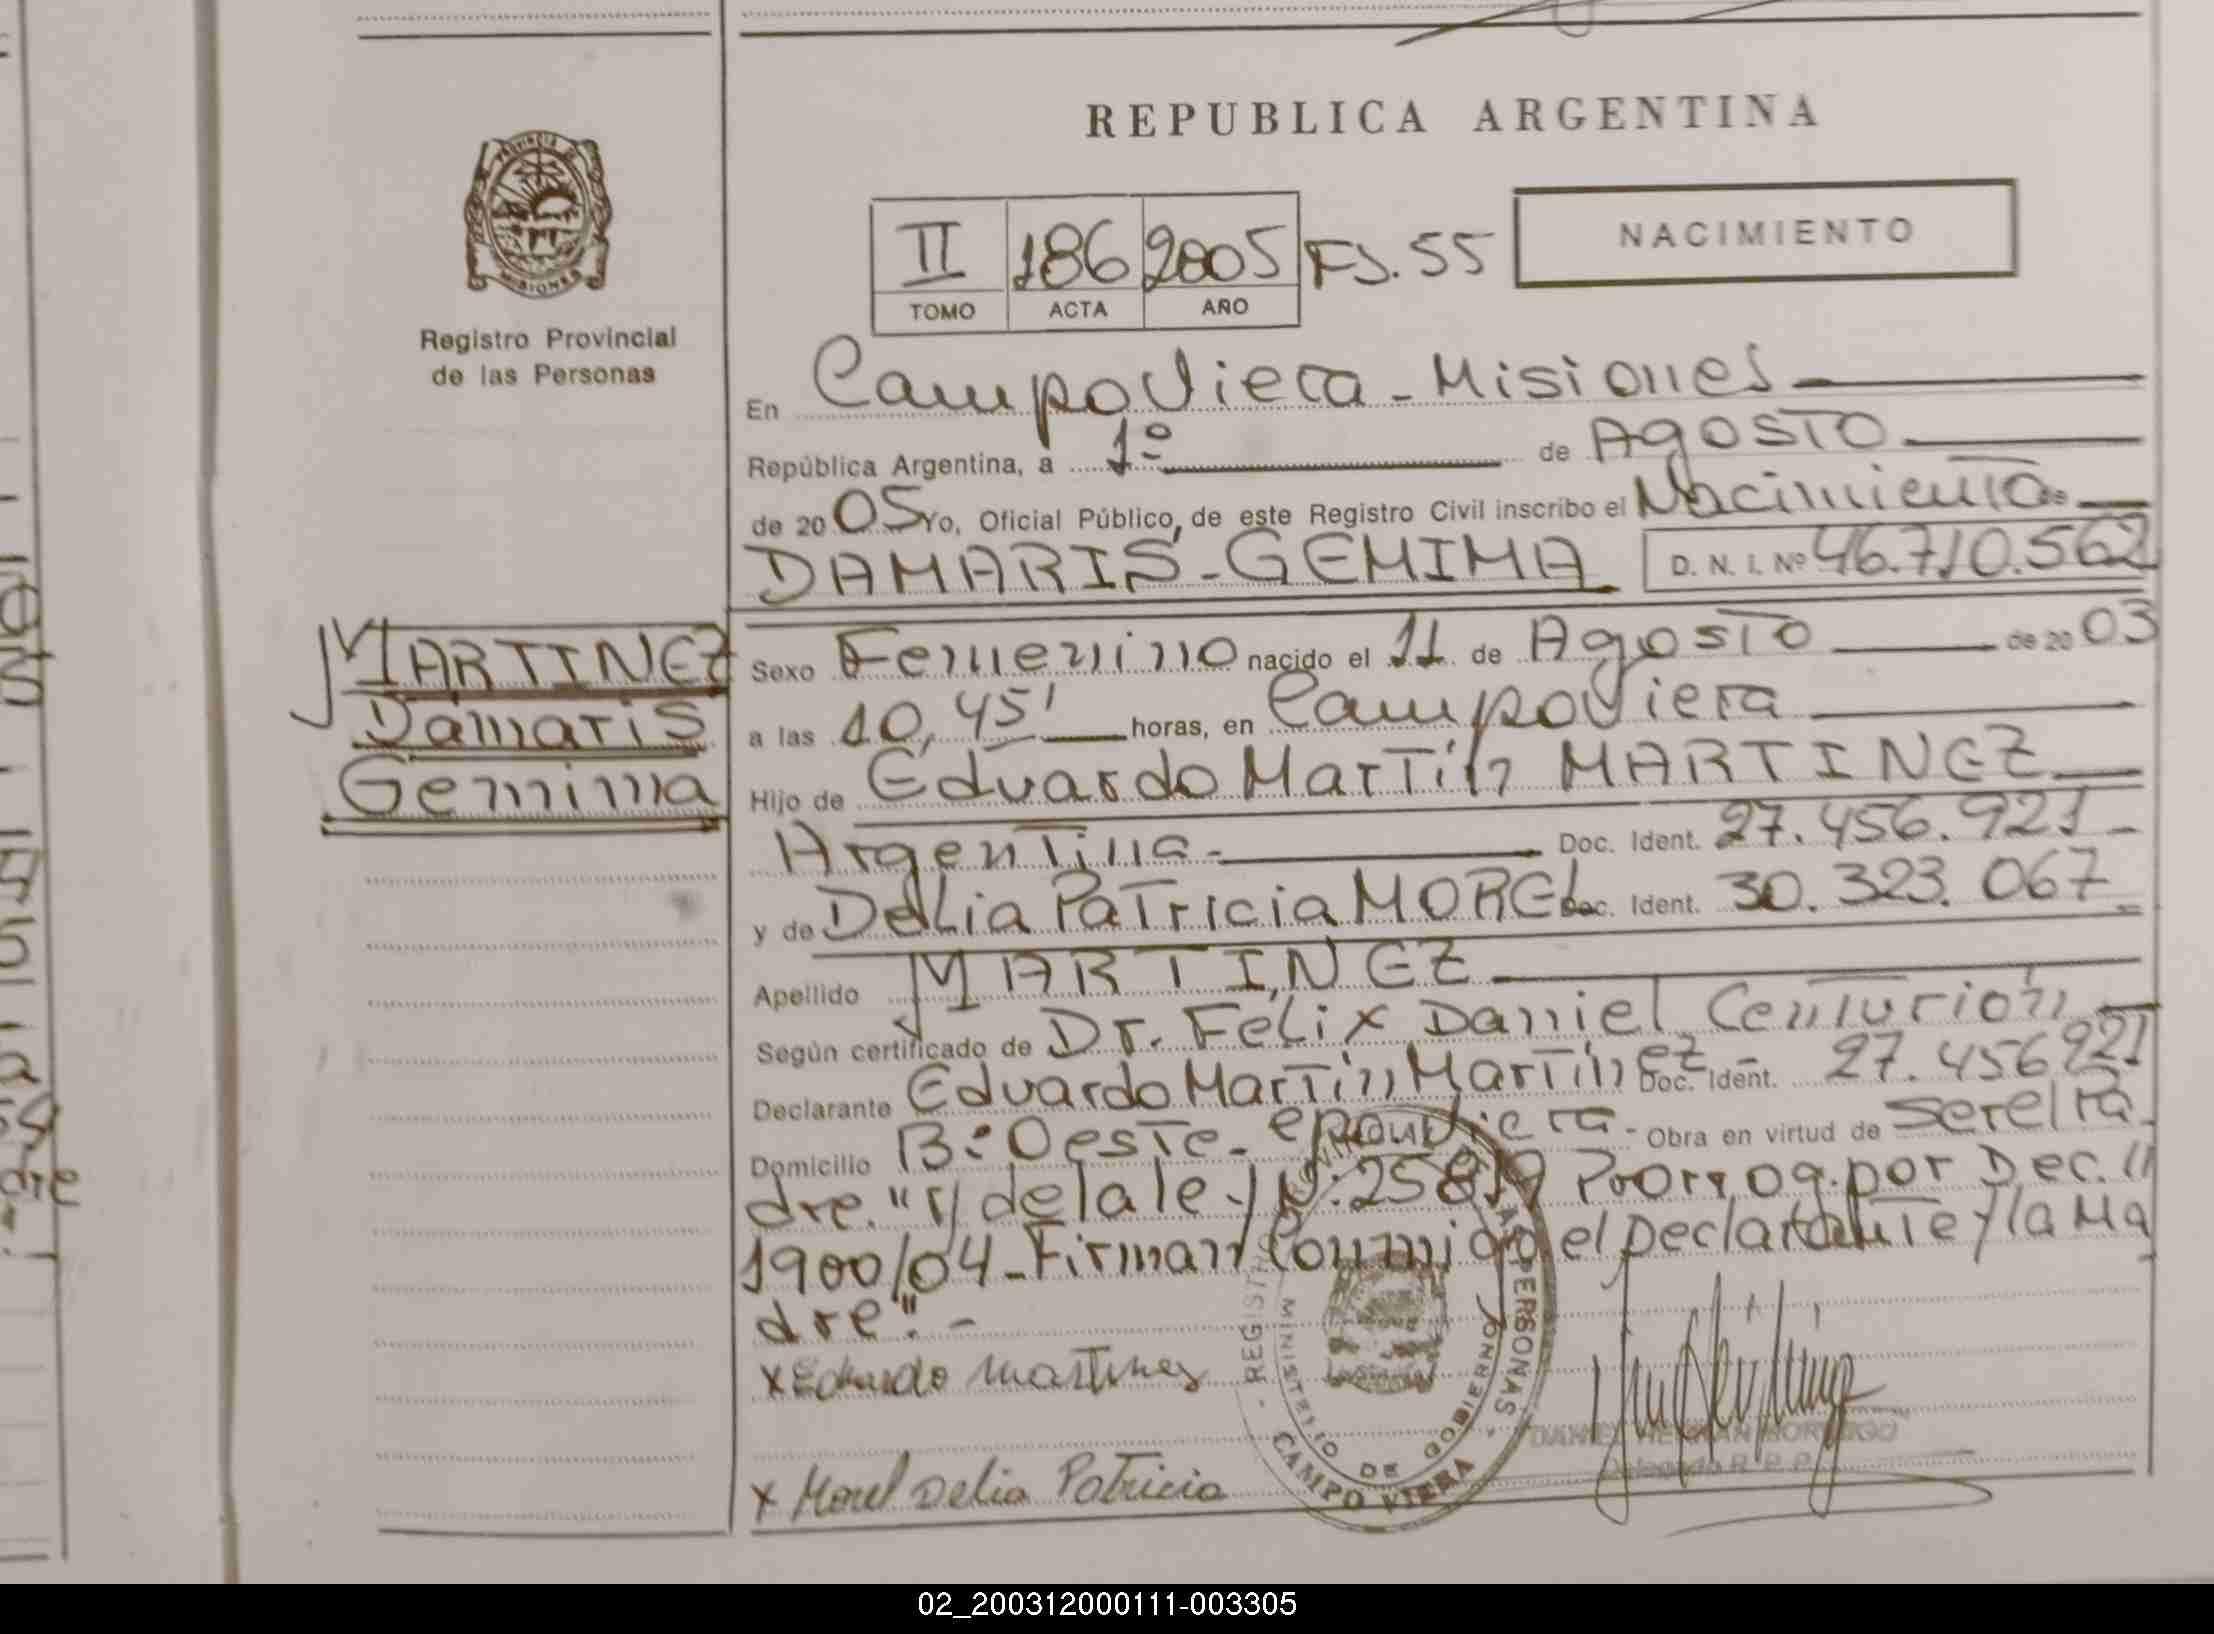 REPUBLICA ARGENTINA
PROVINCIA DE
MISIONES
Registro Provincial
de las Personas
II 186 2005 FJ. 55
TOMO ACTA AÑO
NACIMIENTO
En Campo Viera - Misiones
República Argentina, a 1º de Agosto
de 2005 Yo, Oficial Público, de este Registro Civil inscribo el Nacimiento de
DAMARIS - GEMIMA D. N. I. Nº 46.710.562
MARTINEZ
Damaris
Gemima
Sexo Femenino nacido el 11 de Agosto de 2003
a las 10,45' horas, en Campo Viera
Hijo de Eduardo Martín MARTINEZ
Argentina - Doc. Ident. 27.456.921 -
y de Delia Patricia MOREL Doc. Ident. 30.323.067
Apellido MARTINEZ
Según certificado de Dr. Felix Daniel Centurión
Declarante Eduardo Martín Martínez - Doc. Ident. 27.456921
Domicilio Bº Oeste - Viera - Obra en virtud de ser el Pa
dre. "r/ de la ley Nº 25819 Prorrog. por Dec. 11
1900/04 - Firman Conmigo el Declarante y la Ma
dre". -
x Eduardo Martinez
x Morel Delia Patricia
REGISTRO PERSONAS
MINISTERIO DE GOBIERNO
CAMPO VIERA
DANIEL
Delegado R. P. P.
02_200312000111-003305